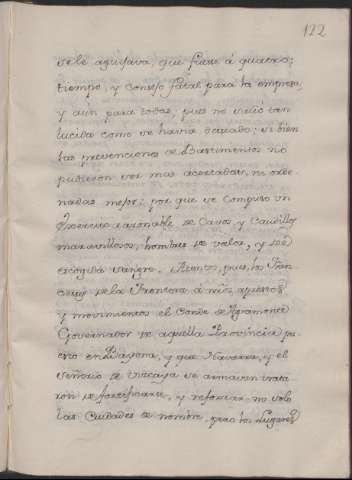 122
se le aguisava, que fuese á quatro:
tiempo, y consejo fatal para la empresa,
y aun para todas; pues no salió tan
lucida como se havia deseado; si bien
las prevenciones de Bastimentos no
pudieron ser mas acertadas, ni orde-
nadas mejor; por que se compuso un
Exercito razonable de Cavos, y Caudillos
maravillosos, hombres de valor, y de
escogida sangre. Atentos, pues, los Fran-
ceses de la Frontera á mis aprestos
y movimientos el Conde de Agramonte
Governador de aquella Provincia pu-
esto en Bayona, y que Navarra, y el
Señorio de Vizcaya se armaven trata-
ron de fortificarse, y reforzar no solo
las Ciudades de nombre, pero los Lugares